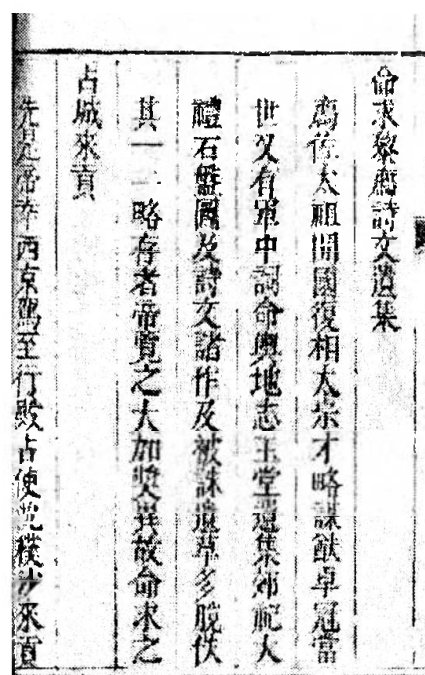 命求黎廌詩文遺集
廌佐太祖開國復相太宗才略謀猷卓冠當
世又有軍中詞命輿地志玉堂遺集郊祀大
禮石磬圖及詩文諸作及被誅遺草多脫佚
其一二略存者帝覽之大加奬異故命求之
占城來貢
先是帝幸西京駕至行殿占使茫穫沙來貢